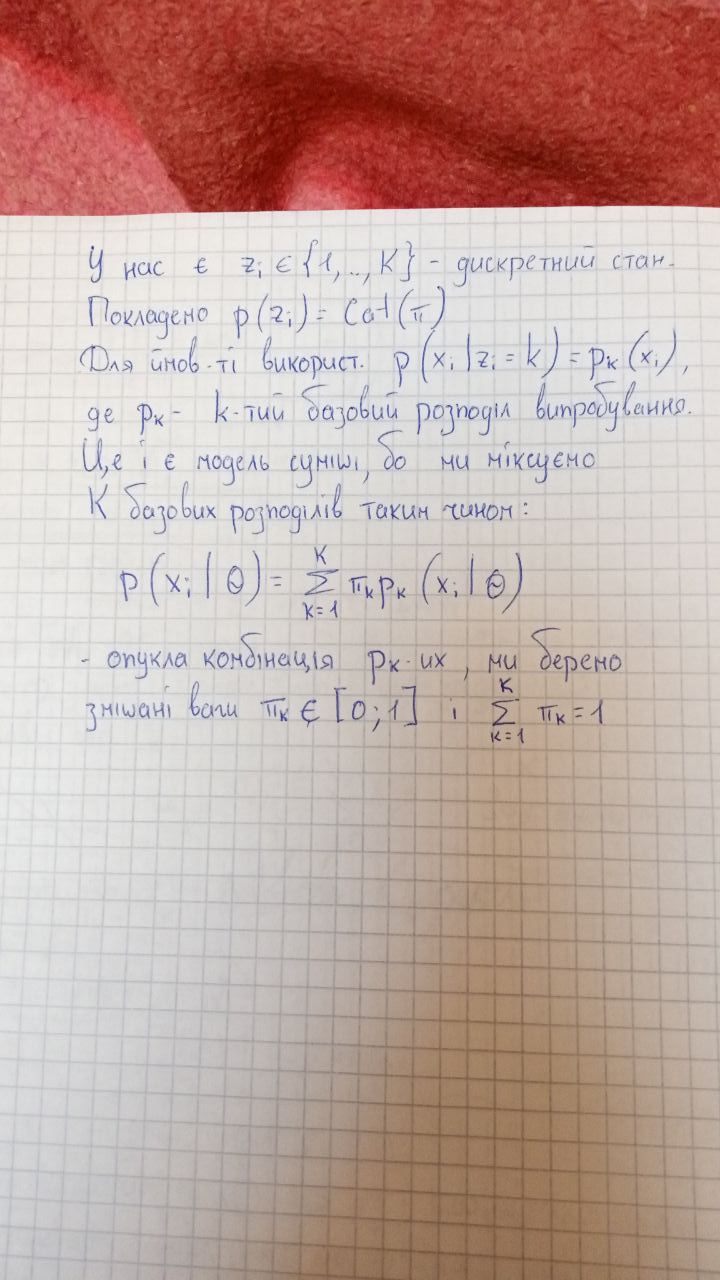 У нас є zᵢ ∈ {1,..,K} - дискретний стан.
Покладено p(zᵢ) = Cat(π)
Для ймов-ті використ. p(xᵢ|zᵢ = k) = pₖ(xᵢ),
де pₖ - k-тий базовий розподіл випробування.
Це і є модель суміші, бо ми міксуємо
K базових розподілів таким чином:
p(xᵢ|θ) = ∑ₖ₌₁ᴷ πₖpₖ(xᵢ|θ)
- опукла комбінація pₖ-их, ми беремо
змішані ваги πₖ ∈ [0;1] і ∑ₖ₌₁ᴷ πₖ = 1